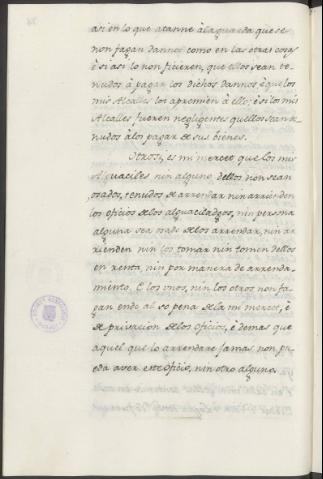 así en lo que atanne à la guarda que se
non fagan dannos como en las otras cosas
è si así lo non ficieren, que ellos sean te-
nudos à pagar los dichos dannos è que los
mis Alcalles los apremien à ello; è si los mis
Alcalles fueren negligentes quellos sean te-
nudos à lo pagar de sus bienes.
Otrosi, es mi mercet que los mis
Alguaciles nin alguno dellos non sean
osados, tenudos de arrendar nin arrienden
los oficios de los alguaciladgos, nin persona
alguna sea osado de los arrendar, nin ar-
rienden nin los tomar nin tomen dellos
en renta, nin por manera de arrenda-
miento. E los unos, nin los otros non fa-
gan ende al so pena de la mi mercet, è
de privacion de los oficios, è demas que
aquel que lo arrendare jamas non pue-
da aver este oficio, nin otro alguno.